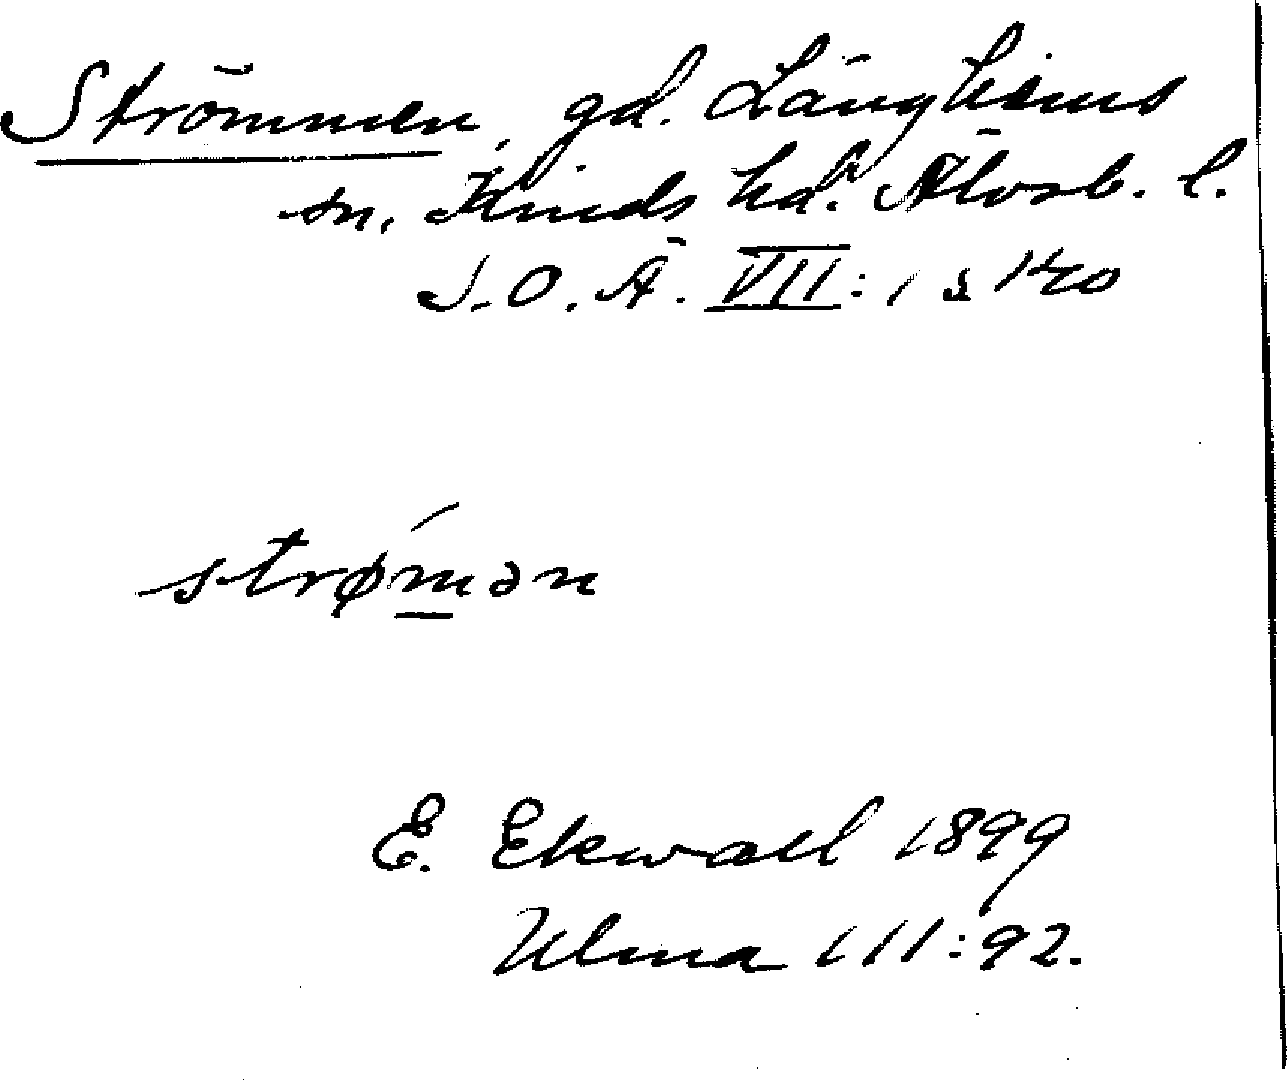 Strömmen, gd. Länghems
sn, Kinds hd. Älvsb. l.
S.O.Ä. VII: 1 s 140
strǿmən
E. Ekwall 1899
Ulma 111:92.